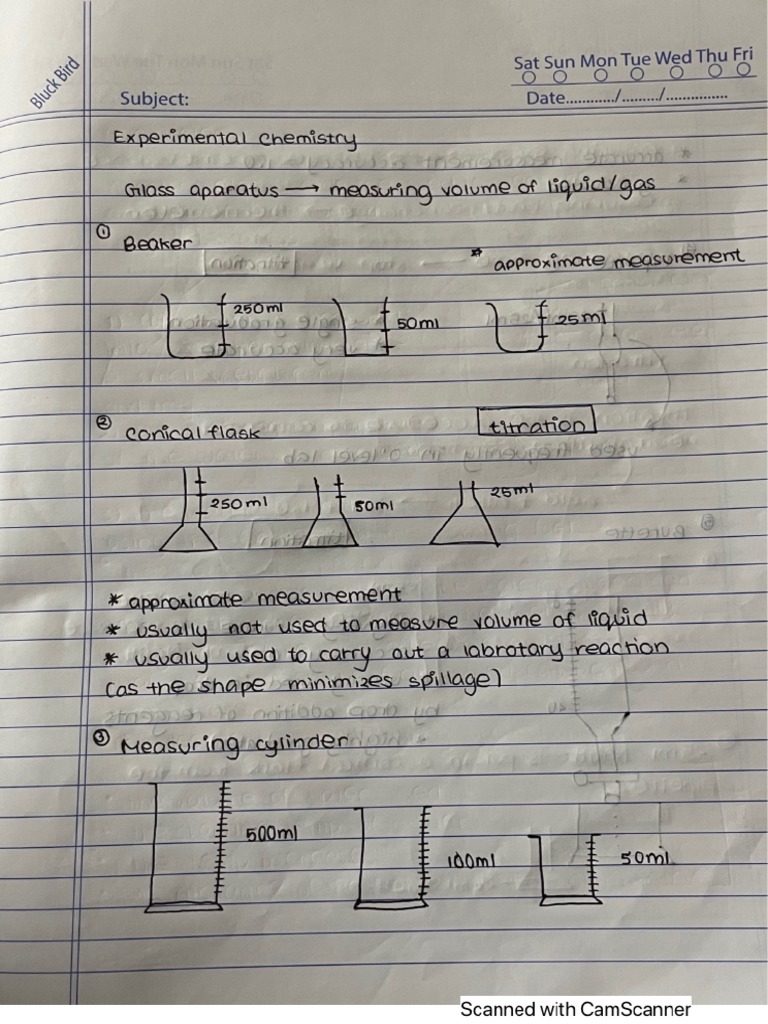 Bluck Bird
Sat Sun Mon Tue Wed Thu Fri
Subject:
Date............/........./...............
Experimental chemistry
Glass aparatus → measuring volume of liquid/gas
① Beaker
* approximate measurement
250ml 50ml 25ml
② conical flask titration
250ml 50ml 25ml
* approximate measurement
* usually not used to measure volume of liquid
* usually used to carry out a labrotary reaction
(as the shape minimizes spillage)
③ Measuring cylinder
500ml 100ml 50ml
Scanned with CamScanner